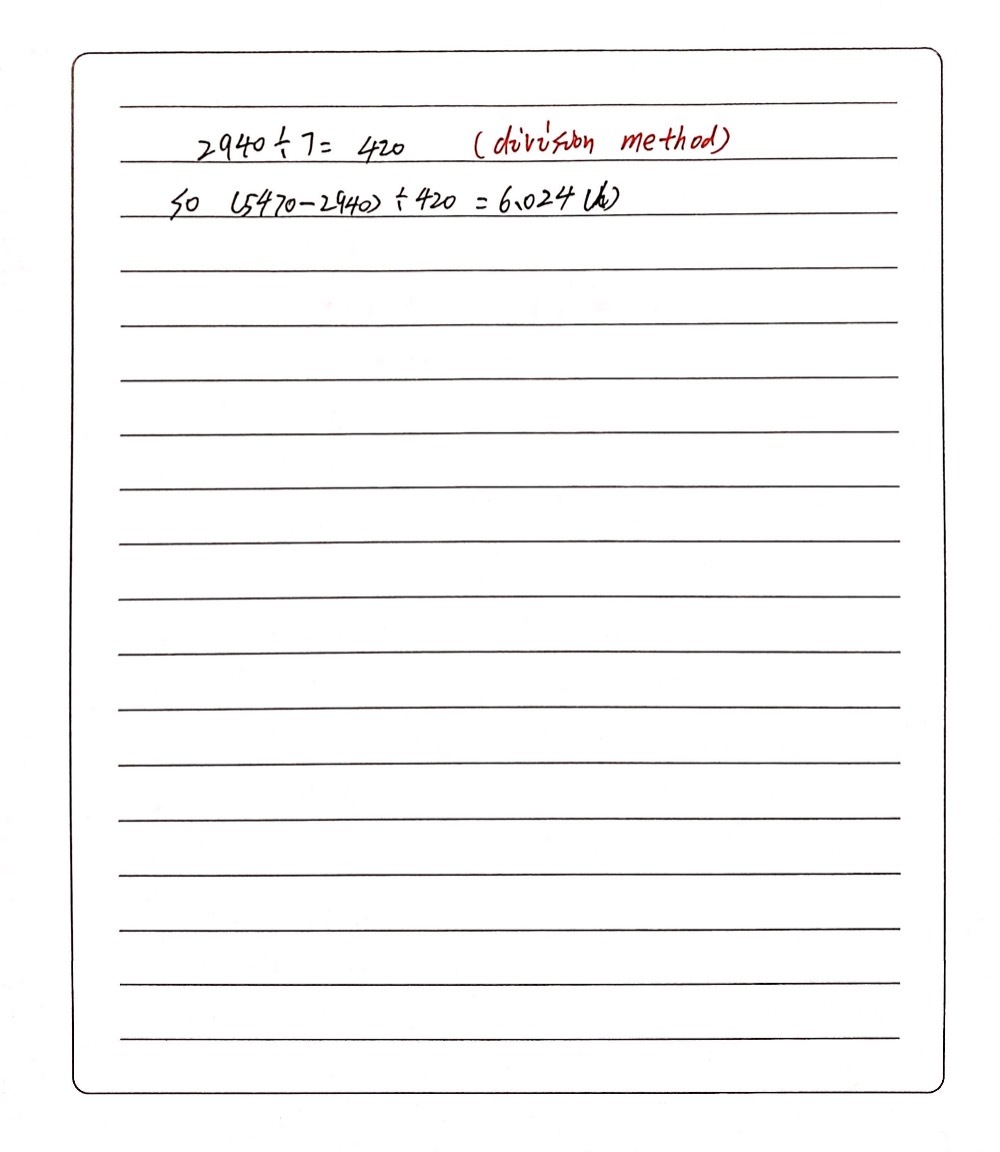 2940÷7= 420 (division method)
so (5470-2940)÷420 = 6.024 (h)